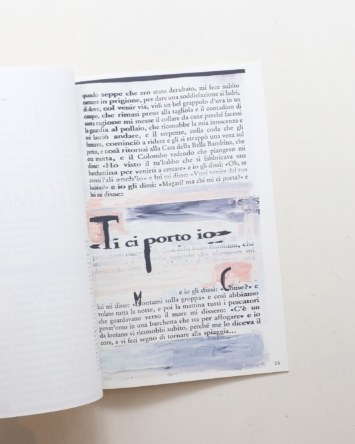 quando seppe che ero stato derubato, mi fece subito
mettere in prigione, per dare una soddisfazione ai ladri,
di dove, col venir via, vidi un bel grappolo d'uva in un
campo, che rimasi preso alla tagliola e il contadino di
santa ragione mi messe il collare da cane perché facessi
la guardia al pollaio, che riconobbe la mia innocenza e
mi lasciò andare, e il serpente, colla coda che gli
fumava, cominciò a ridere e gli si strappò una vena sul
petto, e così ritornai alla Casa della Bella Bambina, che
era morta, e il Colombo vedendo che piangevo mi
disse: «Ho visto il tu' babbo che si fabbricava una
barchettina per venirti a cercare» e io gli dissi: «Oh, se
avessi l'ali anch'io» e lui mi disse: «Vuoi venire dal tuo
babbo?» e io gli dissi: «Magari! ma chi mi ci porta?» e
«Ti ci porto io»
e io gli dissi: «Come?» e
lui mi disse: «Montami sulla groppa» e così abbiamo
volato tutta la notte, e poi la mattina tutti i pescatori
che guardavano verso il mare mi dissero: «C'è un
pover'uomo in una barchetta che sta per affogare» e io
da lontano vi riconobbi subito, perché me lo diceva il
core, e vi feci segno di tornare alla spiaggia...